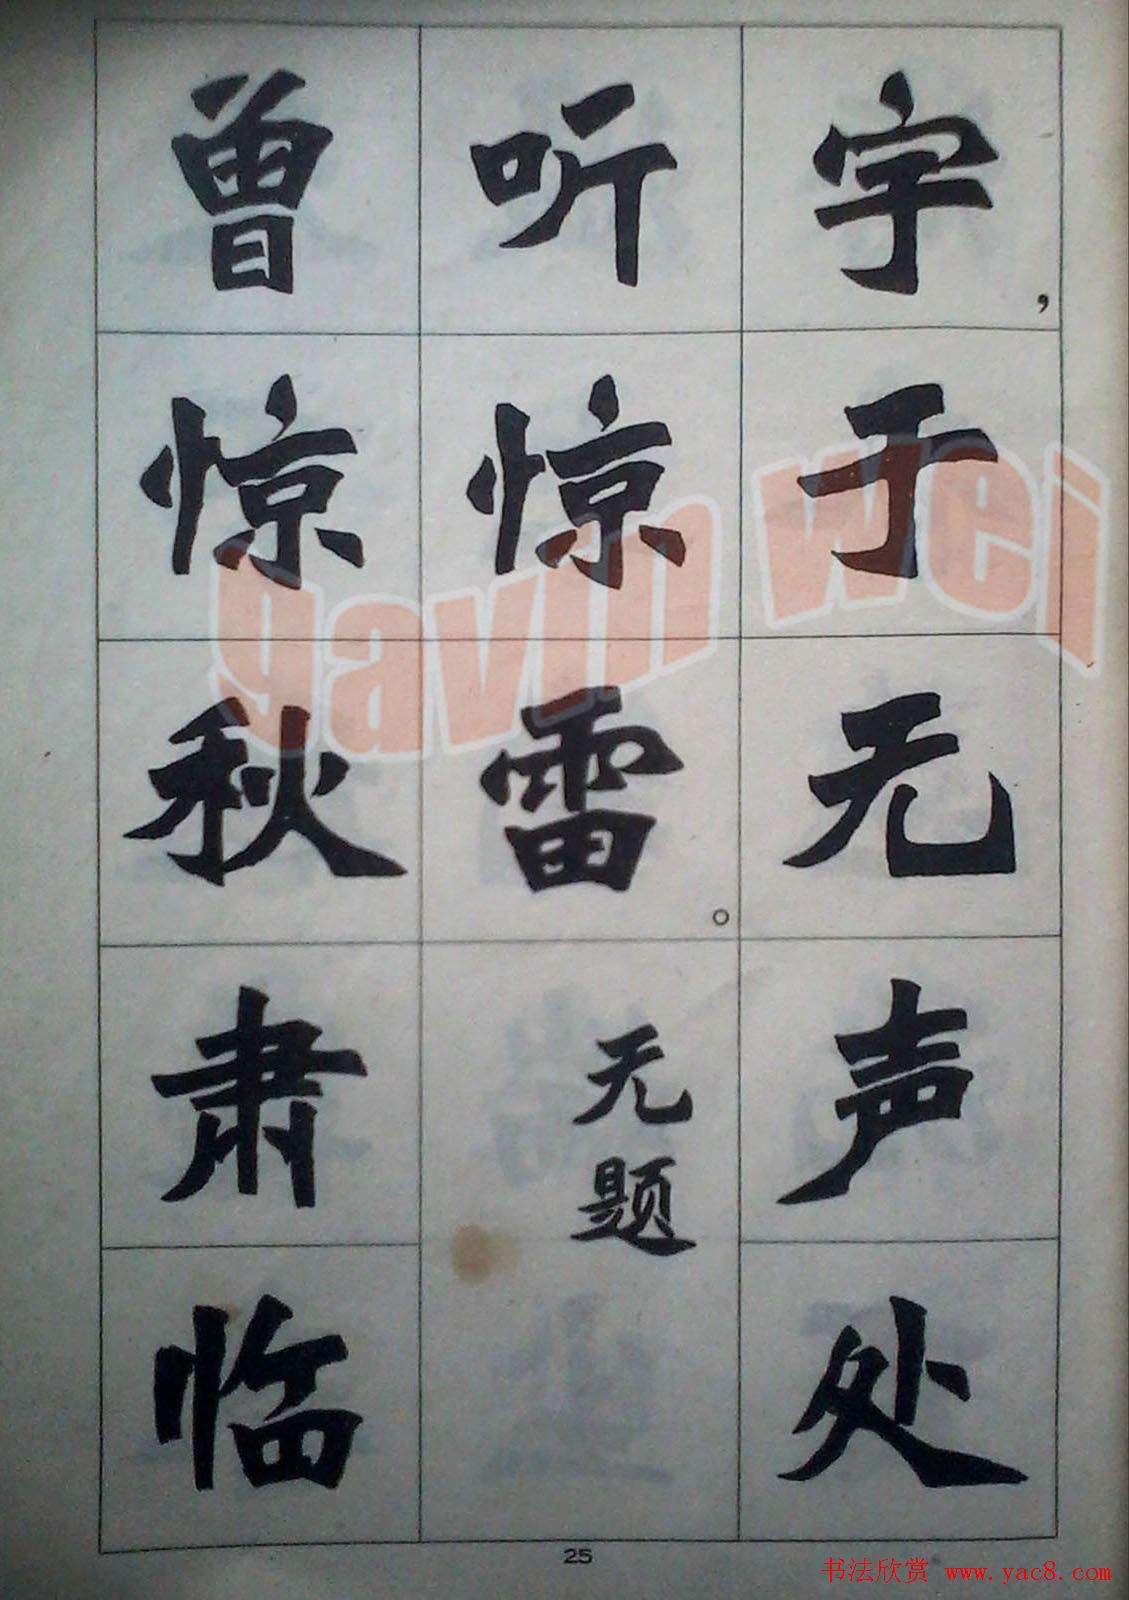 宇，于无声处
听惊雷。
无题
曾惊秋肃临
gavin wei
25
书法欣赏 www.yac8.com